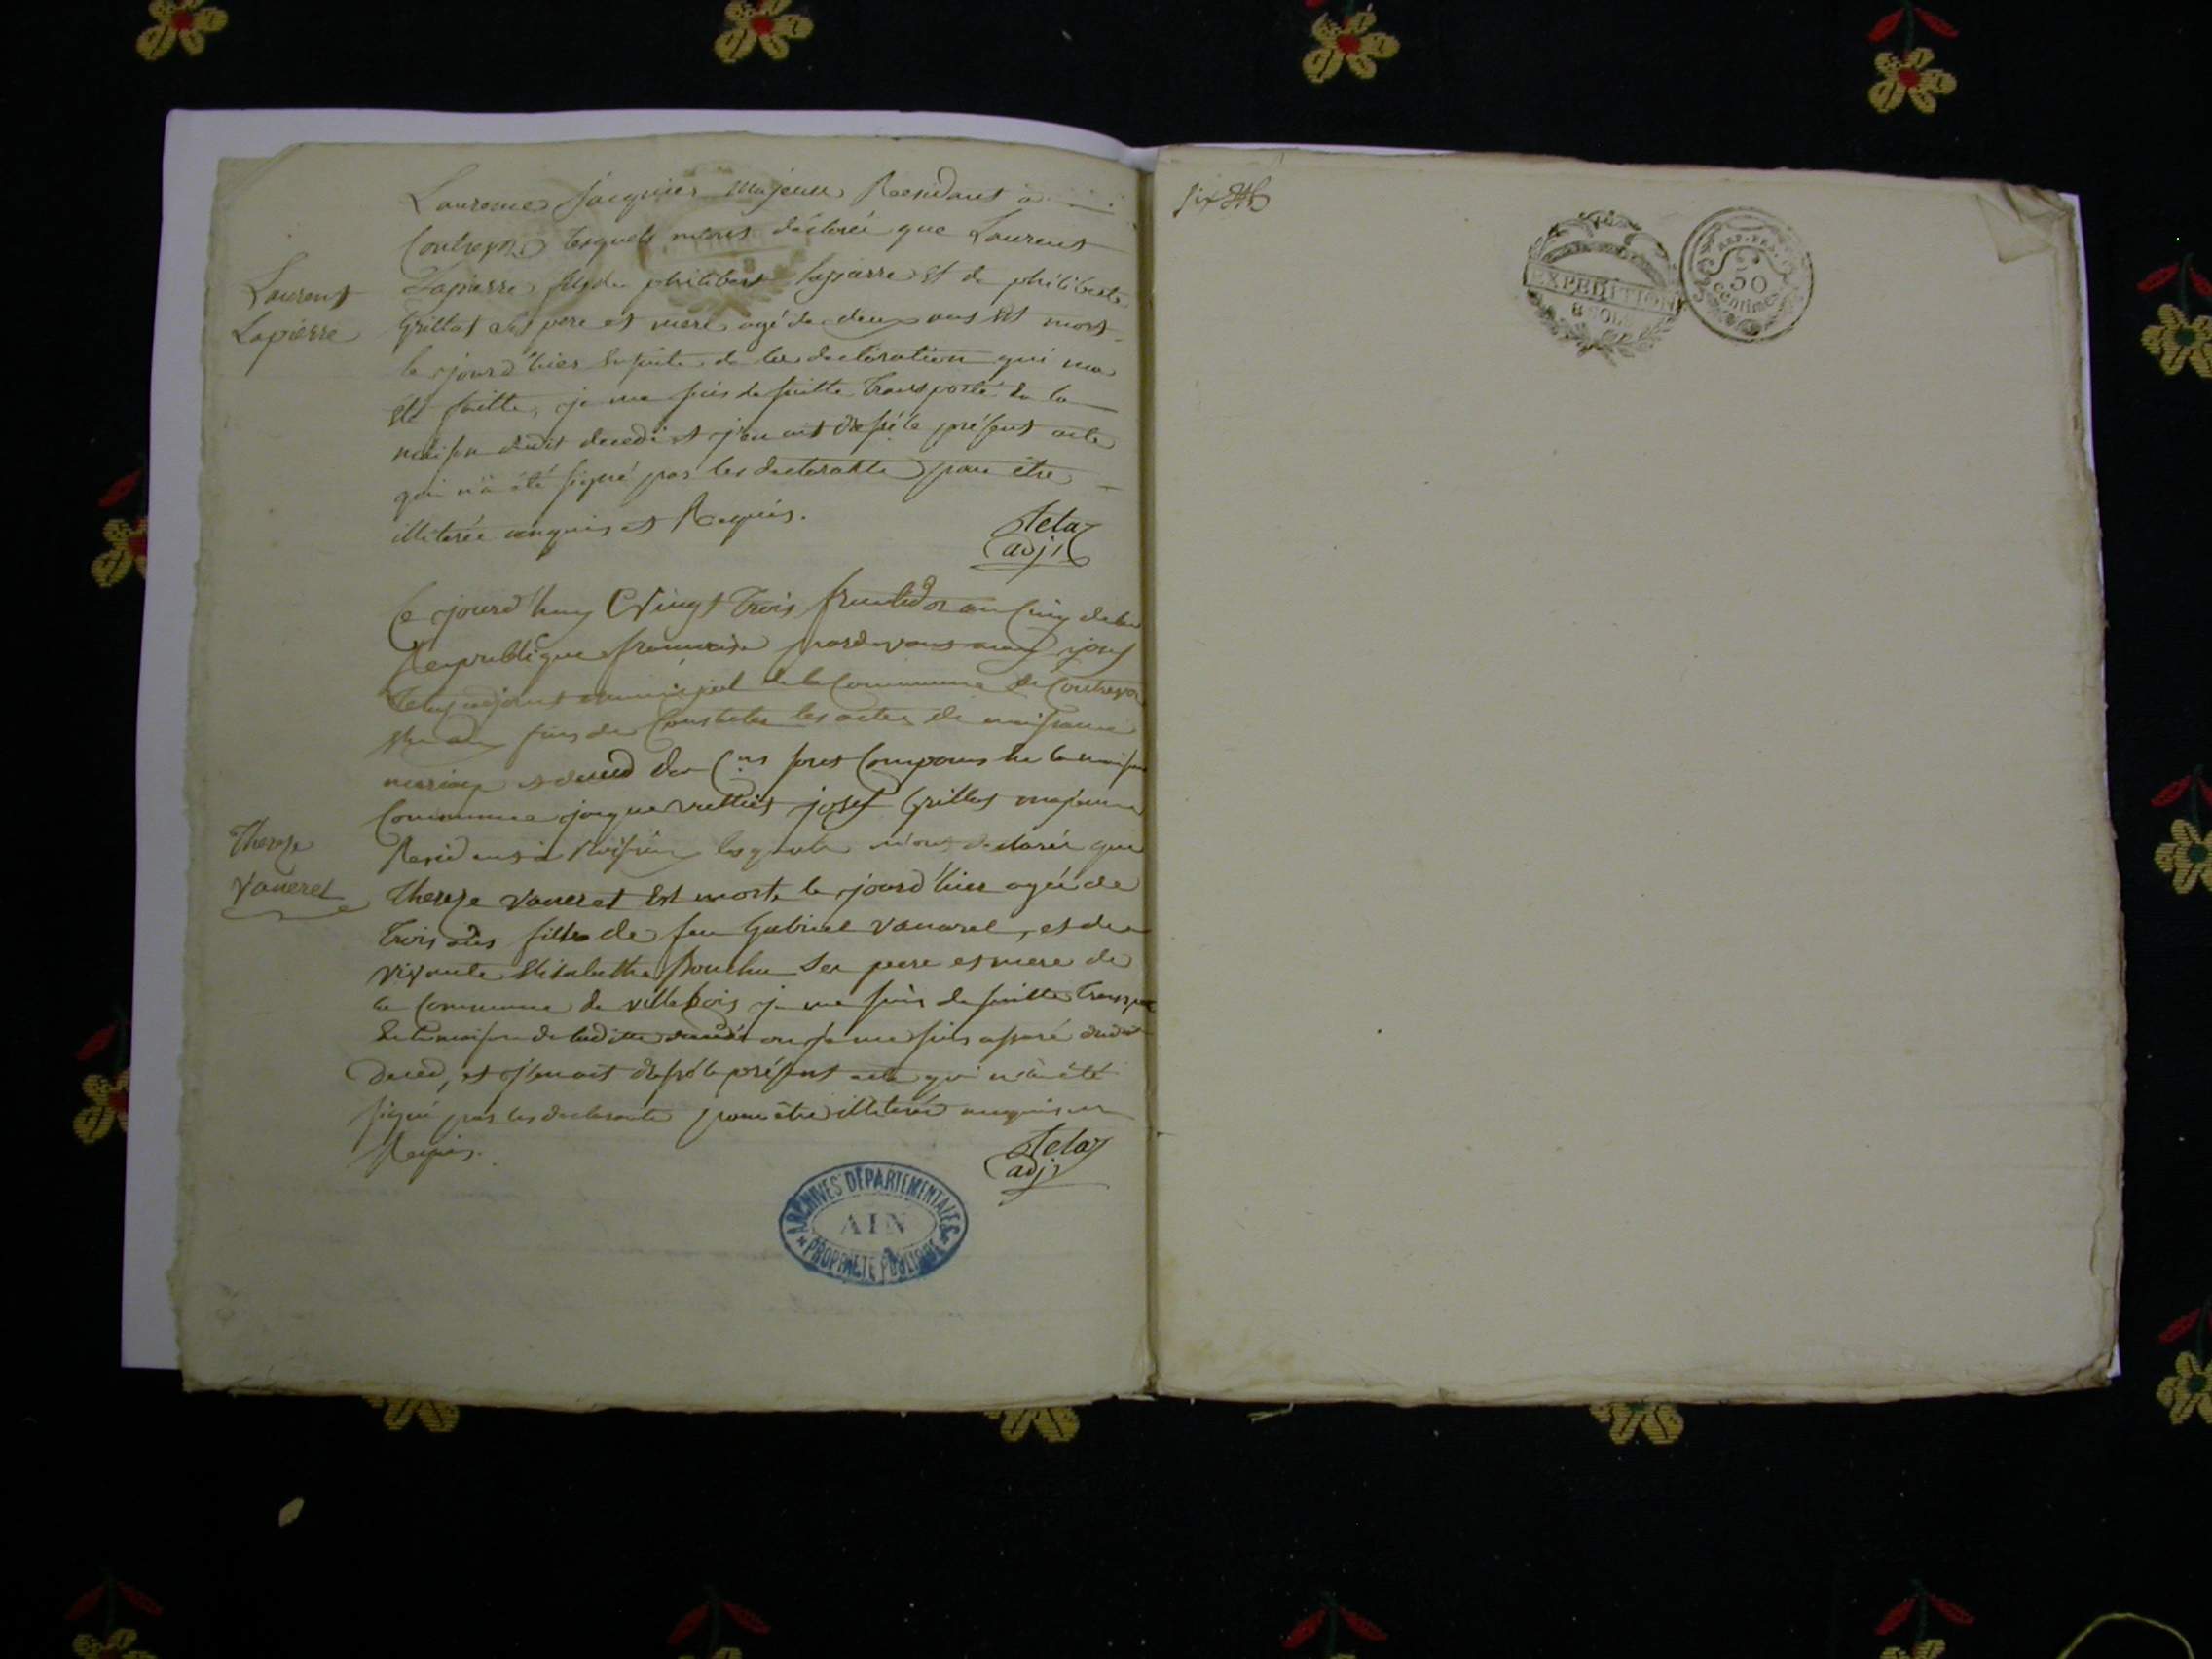 Laurence Jacquier majeurs Residant à
Contrevoz lesquels m'ont déclaré que Laurent
Laurent
Lapierre
Lapierre fils de philibert Lapierre et de philiberte
Grillot ses pere et mere agé de deux ans est mort
le jourd'hier ensuite de la declaration qui ma
été faitte, je me suis de suitte transporté en la
maison dudit decedé et j'en ait dressé le présent acte
qui n'a été signé par les declarants pour être
illiterée enquis et Requis.
Tetaz
adjt
Ce jourd'huy Vingt Trois fructidor an Cinq de la
Republique francaise pardevant moy
adjoint municipal de la Commune de Contrevoz
fins de Constater les actes de naissance
mariage et deced des Cns sont Comparus en la maison
Commune jaque josef Grillot majeurs
Residents à lesquels m'ont declaré que
Therese
Vaneret
Therese Vaneret Est morte le jourd'hier agée de
Trois ans fille de feu Gabriel Vanaret, et de
vivante Elisabethe Bouchu ses pere et mere de
la Commune de villebois je me suis de suitte transporté
En la maison de laditte decedé ou je me suis assuré dudit
Deced, et j'en ait dressé le présent acte qui n'a été
signé par les declarants pour être illiteré enquis et
Requis.
Tetaz
adjt
ARCHIVES DÉPARTEMENTALES
AIN
PROPRIÉTÉ PUBLIQUE
six
EXPEDITION
8 SOLS
REP. FRA.
50
centimes